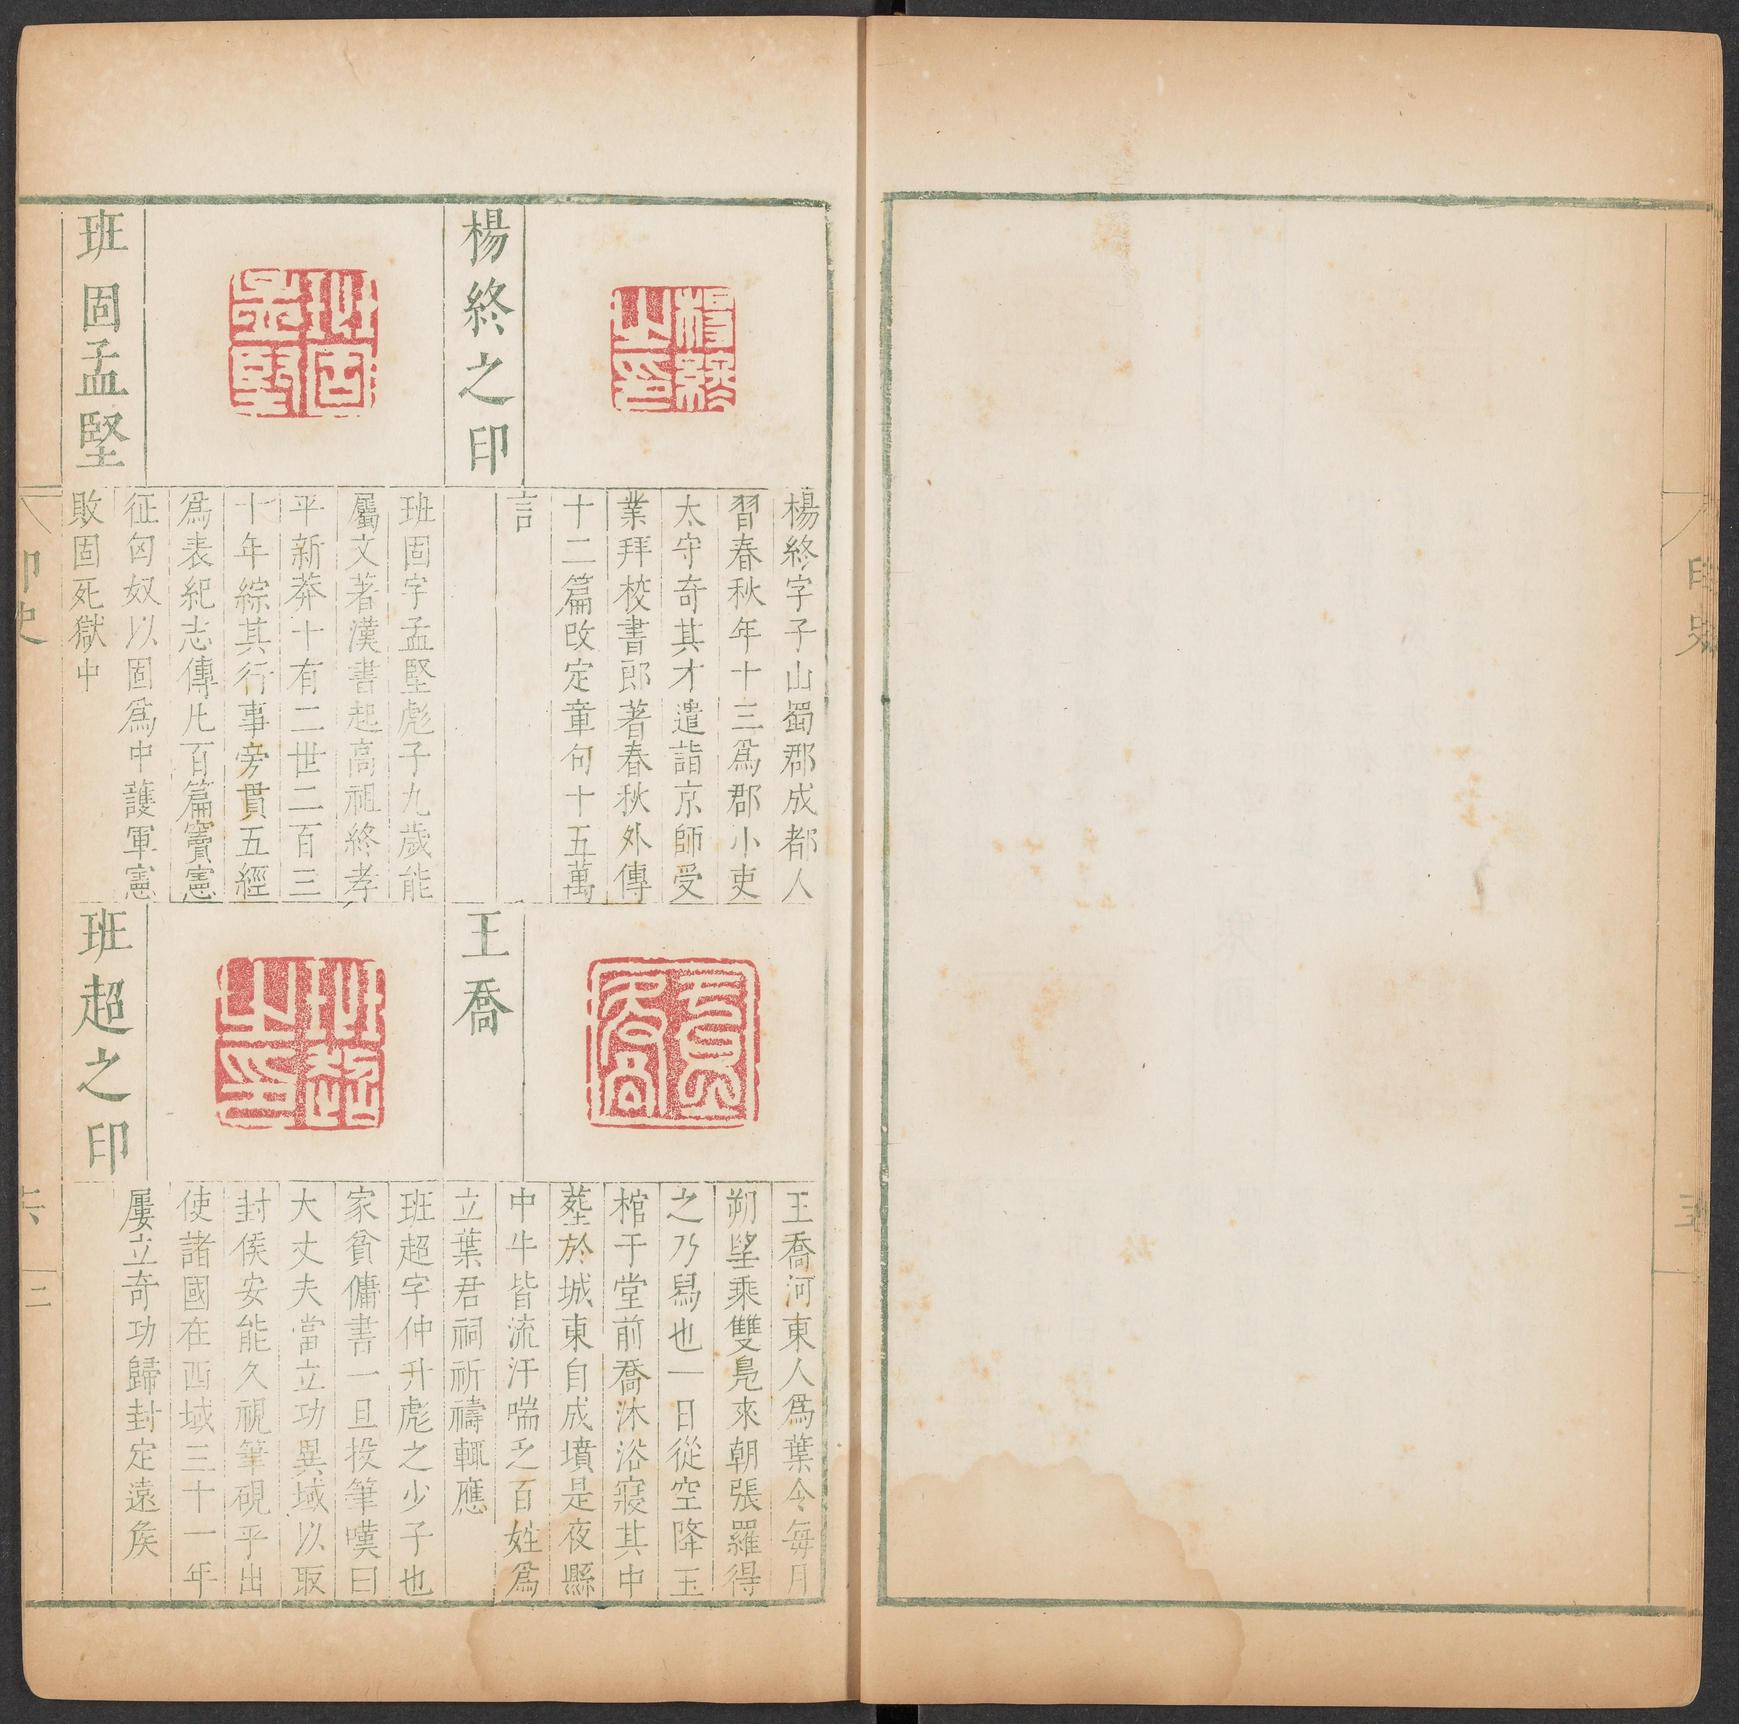 印史
五
楊終之印
楊終之印
楊終字子山蜀郡成都人
習春秋年十三爲郡小吏
太守奇其才遣詣京師受
業拜校書郎著春秋外傳
十二篇改定章句十五萬
言
班固孟堅
班固孟堅
班固字孟堅彪子九歲能
屬文著漢書起高祖終孝
平新莽十有二世二百三
十年綜其行事旁貫五經
爲表紀志傳凡百篇竇憲
征匈奴以固爲中護軍憲
敗固死獄中
王喬
王喬
王喬河東人爲葉令每月
朔望乘雙鳧來朝張羅得
之乃舄也一日從空降玉
棺于堂前喬沐浴寢其中
塟於城東自成墳是夜縣
中牛皆流汗喘乏百姓爲
立葉君祠祈禱輒應
班超之印
班超之印
班超字仲升彪之少子也
家貧傭書一旦投筆嘆曰
大丈夫當立功異域以取
封侯安能久視筆硯乎出
使諸國在西域三十一年
屢立奇功歸封定遠侯
印史
六